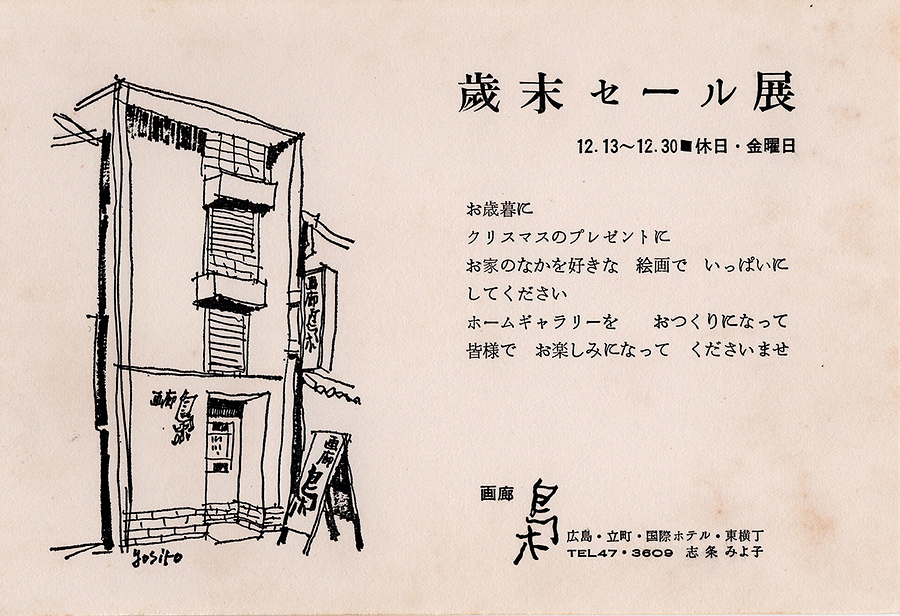 歳末セールル展
12.13〜12.30■休日・金曜日
お歳暮に
クリスマスのプレゼントに
お家のなかを好きな　絵画で　いっぱいに
してください
ホームギャラリーを　　おつくりになって
皆様で　お楽しみになって　くださいませ
画廊
広島・立町・国際ホテル・東横丁
TEL47・3609　志条みよ子
画廊
画廊
画廊
yosito